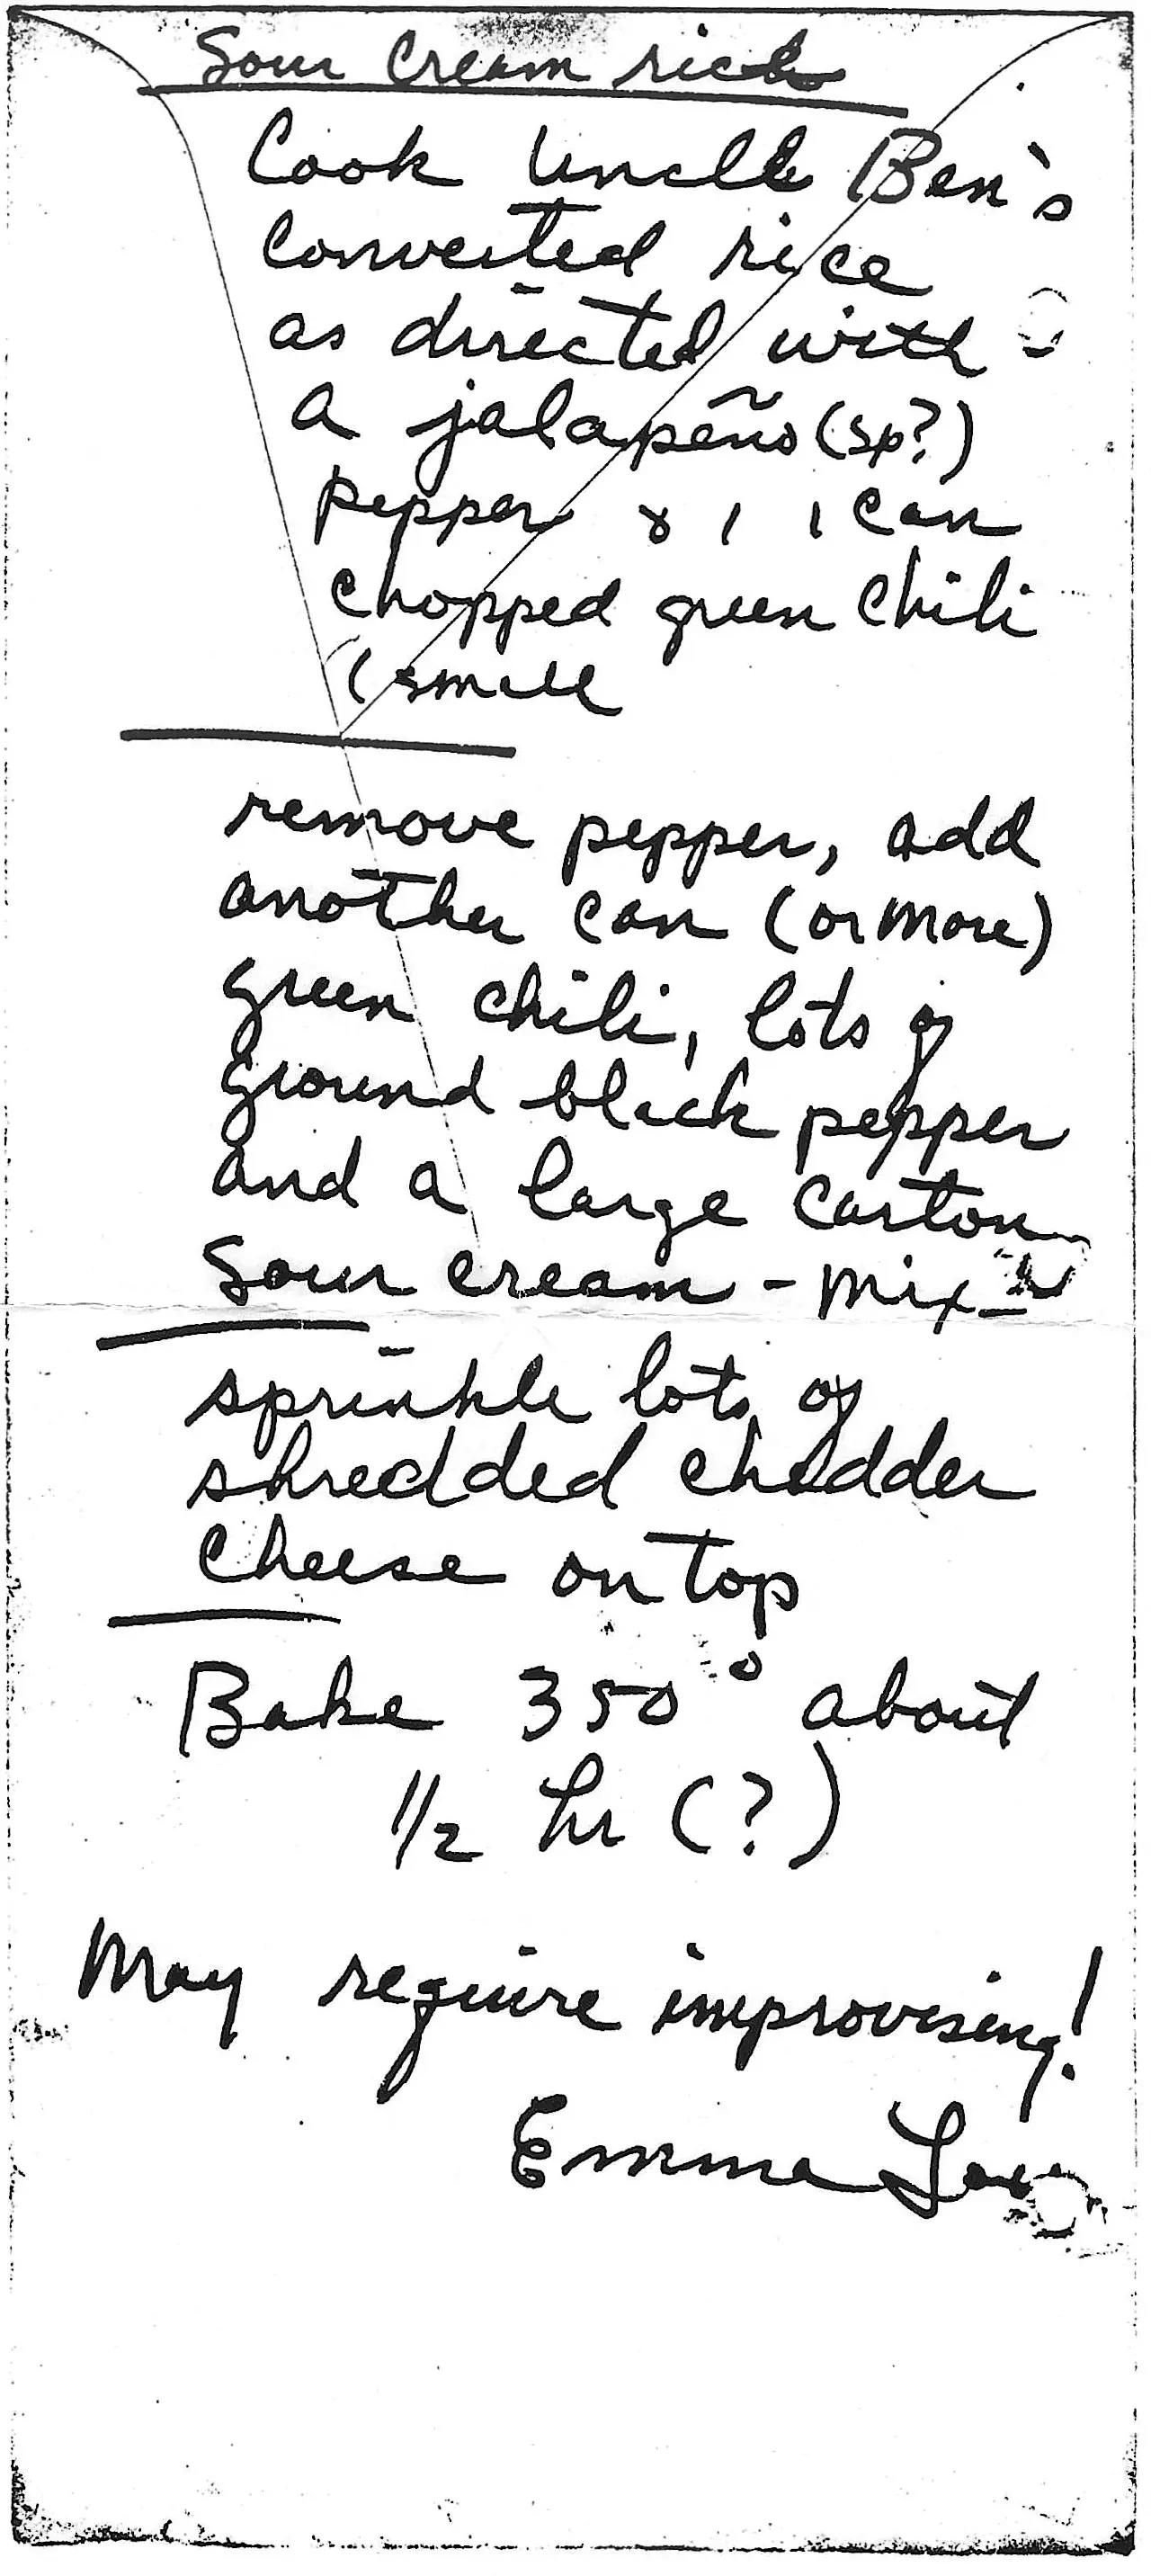 Sour Cream rice
Cook Uncle Ben's
Converted rice
as directed with
a jalapeño (sp?)
pepper & 1 1 can
chopped green chili
(small
remove pepper, add
another can (or more)
green chili, lots of
ground black pepper
and a large carton
Sour cream - mix -
sprinkle lots of
shredded chedder
cheese on top
Bake 350° about
1/2 hr (?)
May require improvising!
Emma